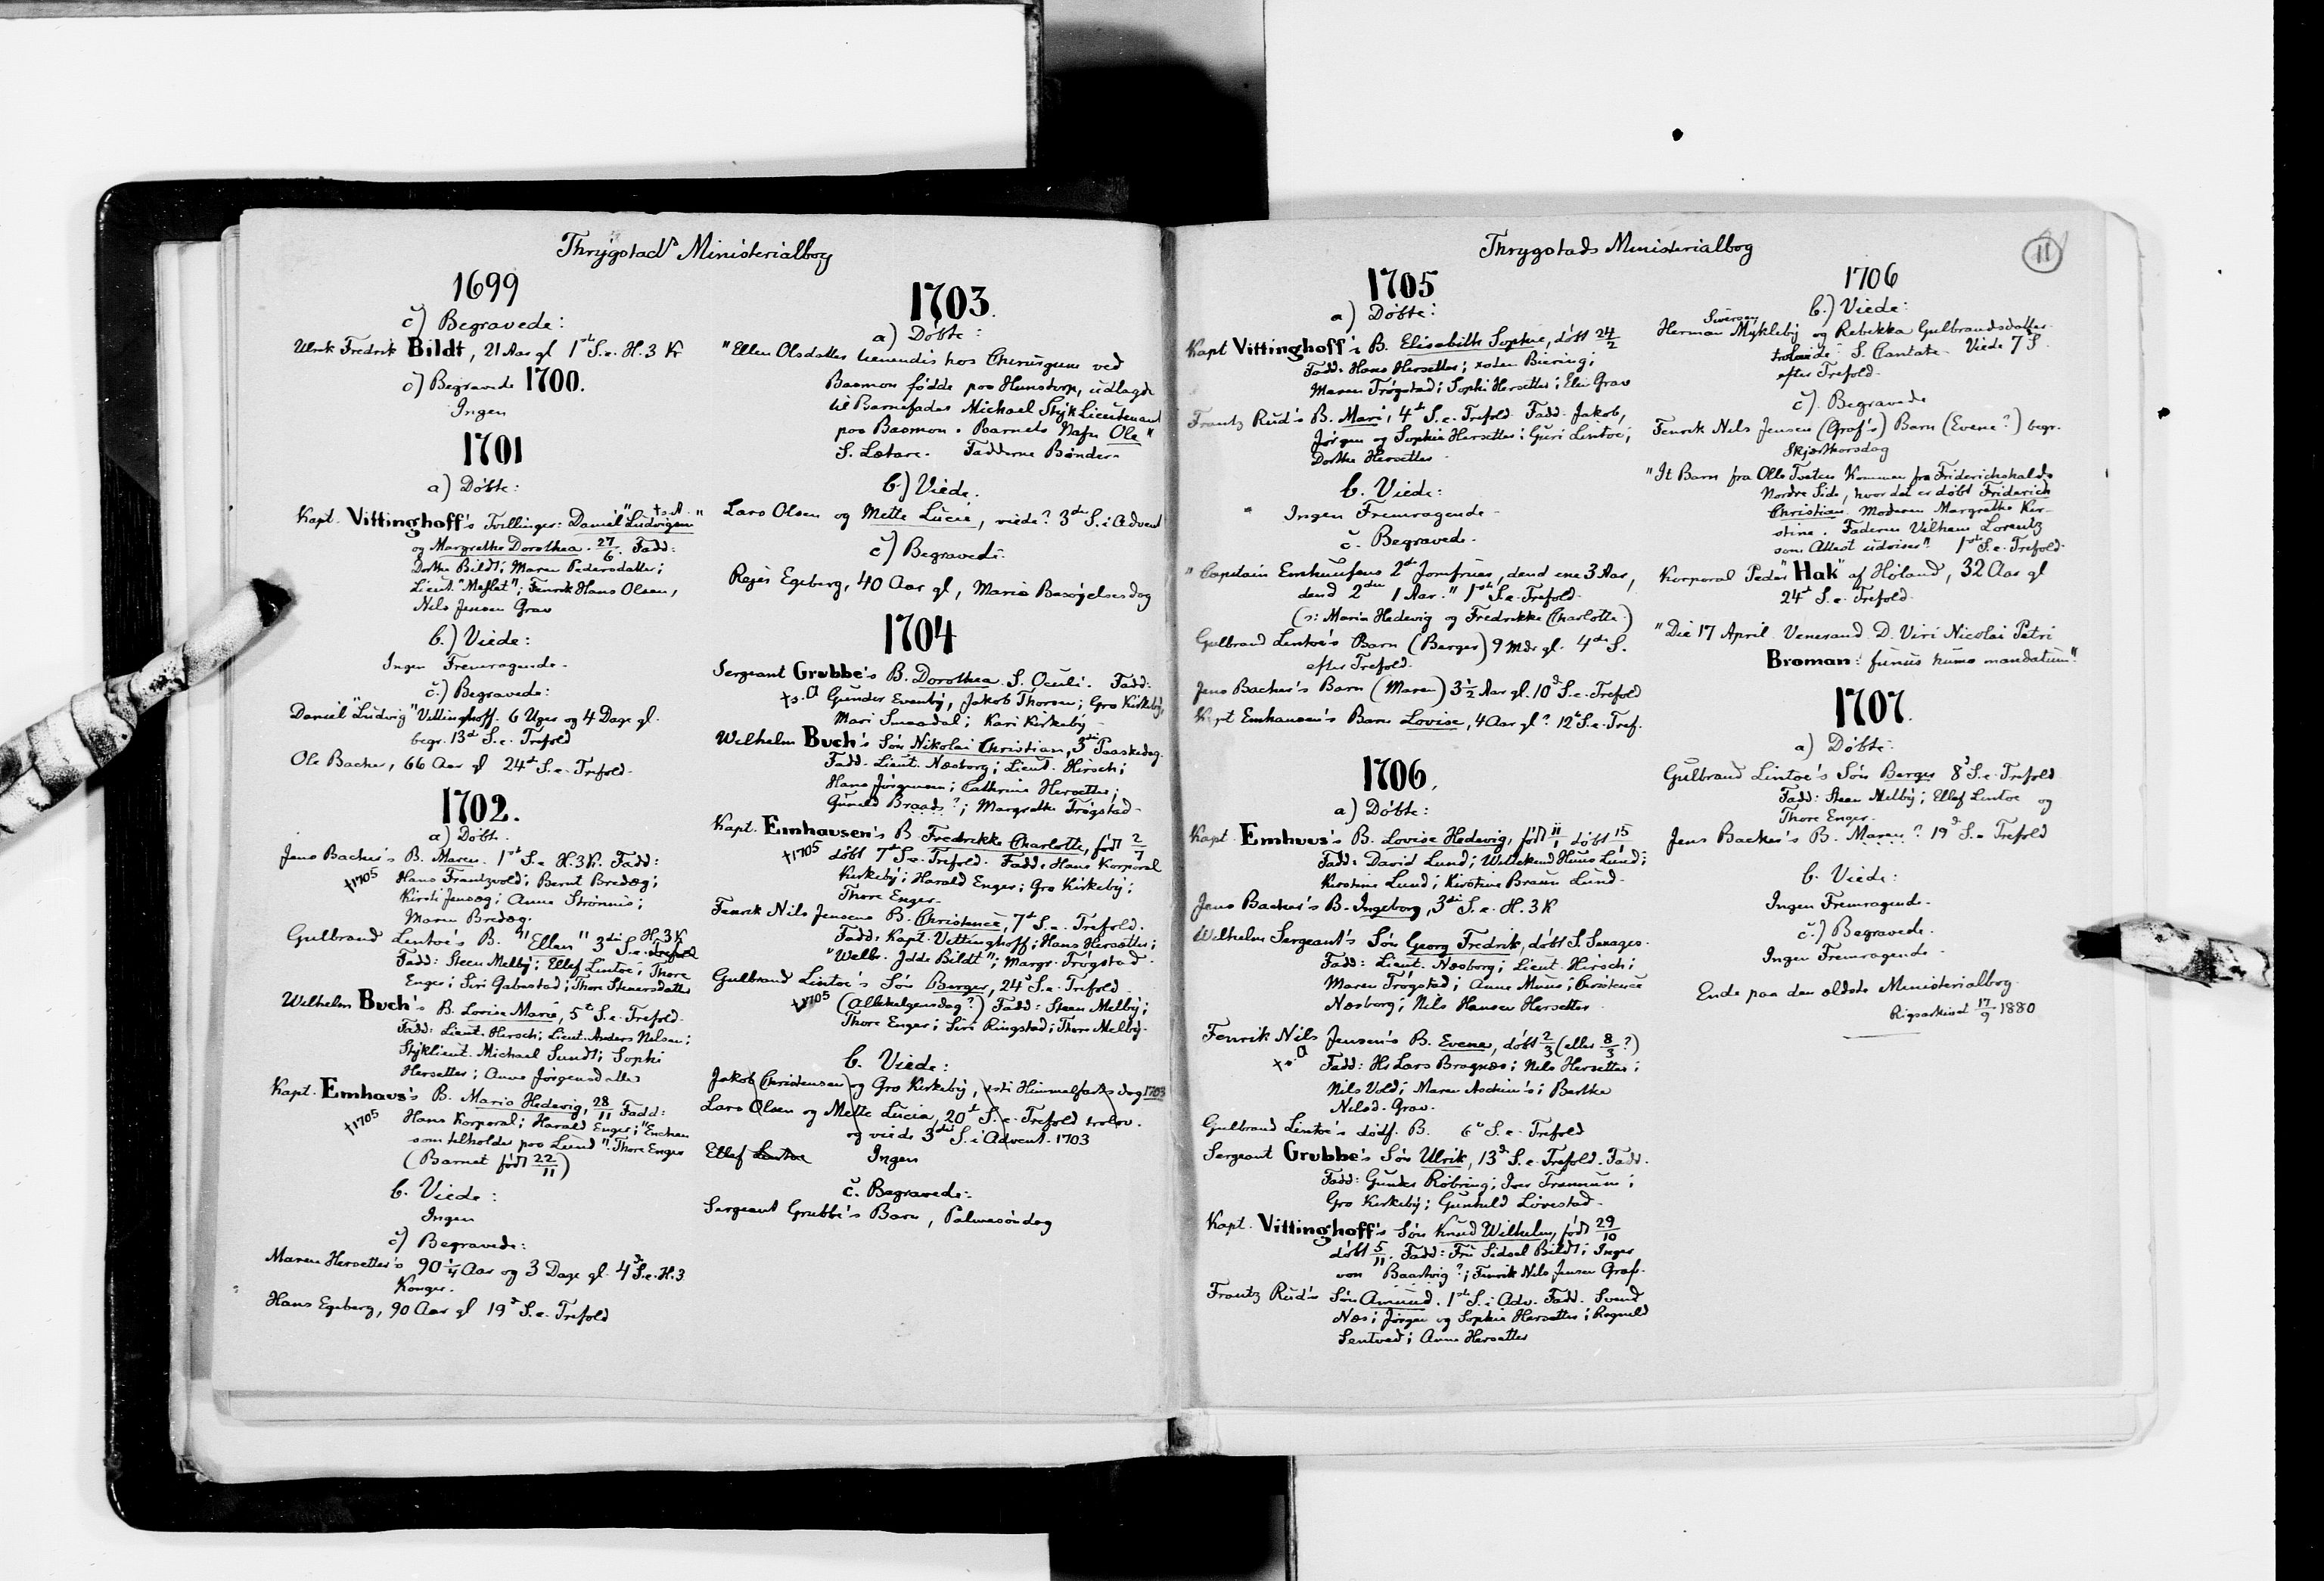 Thrygstads Ministerialbog
1699
c) Begravede:
Ulrik Fredrik Bildt, 21 Aar gl 1ste S. e. H. 3 K
c) Begravede 1700.
Ingen
1701
a) Døbte:
Kapt. Vittinghoff's Tvillinger: Daniel "Ludvigsen" † s. A.
og Margrethe Dorothea. 27/6. Fadd:
Dorthe Bildt; Maren Pedersdatter;
Lieut. "Meflat"; Fenrik Hans Olsen,
Nils Jensen Grav
b.) Viede:
Ingen Fremragende.
c.) Begravede:
Daniel "Ludvig" Vittinghoff. 6 Uger og 4 Dage gl.
begr. 13de S. e. Trefold
Ole Backer, 66 Aar gl 24de S. e. Trefold.
1702.
a) Døbte.
Jens Backer's B. Maren. 1ste S. e. H. 3 K. Fadd:
†1705 Hans Frantzvold; Bernt Bredæg;
Kirsti Jensæg; Anne Strønnis;
Maren Bredæg.
Gulbrand Lintoe's B. "Ellen" 3die S. e. Trefold H. 3 K
Fadd: Steen Melby; Ellef Lintoe; Thore
Enger; Siri Gabestad; Thore Stenersdatter
Wilhelm Buch's B. Lovise Marie, 5te S. e. Trefold.
Fadd: Lieut. Hirsch; Lieut. Anders Nelsen;
Stÿklieut. Michael Sundt; Sophi
Hersetter; Anne Jørgensdatter
Kapt. Emhaus's B. Maria Hedevig, 28/11 Fadd:
†1705 Hans Korporal; Harald Enger; "Enchen
som tilholder paa Lund". Thore Enger
(Barnet født 22/11)
b. Viede:
Ingen
c) Begravede:
Maren Hersetter's 90 1/4 Aar og 3 Dage gl. 4de S. e. H. 3
Konger.
Hans Egeberg, 90 Aar gl 19de S. e. Trefold
1703.
a) Døbte:
"Ellen Olsdatter tienendis hos Chirurgum ved
Basmon fødde paa Hemstorp, udlagde
til Barnefader Michael Stÿk Lieutenant
paa Basmon. Barnets Nafn Ole"
S. Lætare. Fadderne Bønder.
b.) Viede.
Lars Olsen og Mette Lucie, viede? 3die S. i Advent
c) Begravede:
Rejer Egeberg, 40 Aar gl, Maria Besøgelsesdag
1704
Sergeant Grubbe's B. Dorothea S. Oculi. Fadd:
† s. A Gunder Evenby, Jakob Thorsen; Gro Kirkeby,
Mari Smaadal; Kari Kirkeby
Wilhelm Buch's Søn Nikolai Christian, 3die Paaskedag.
Fadd. Lieut. Næsborg; Lieut. Hirsch;
Hans Jørgensen; Cathrine Hersetter;
Guneld Braads?; Margrethe Trøgstad.
Kapt. Emhausen's B. Fredrikke Charlotte, født 2/7
†1705 døbt 7de S. e. Trefold. Fadd: Hans Korporal
Kirkeby; Harald Enger; Gro Kirkeby;
Thore Enger.
Fenrik Nils Jensens B. Christence, 7de S. e. Trefold.
Fadd: Kapt. Vittinghoff; Hans Hersetter;
"Welbr. Jdde Bildt"; Margr. Trøgstad.
Gulbrand Lintoe's Søn Berger, 24de S. e. Trefold
†1705 (Allehelgensdag?) Fadd: Steen Melby;
Thore Enger; Siri Ringstad; Thore Melby.
b. Viede:
Jakob Christensen og Gro Kirkeby, Christi Himmelfartsdag 1703
Lars Olsen og Mette Lucia, 20de S. e. Trefold trolov.
og viede 3die S. i Advent. 1703
Ellef Lintoe Ingen
c. Begravede:
Sergeant Grubbe's Barn, Palmesøndag
Thrygstads Ministerialbog
11
1705
a) Døbte:
Kapt Vittinghoff's B. Elisabeth Sophie, døbt 24/2
Fadd: Hans Hersetter; Biering;
Maren Trøgstad; Sophi Hersetter; Elen Grav
Frantz Rud's B. Mari, 4de S. e. Trefold. Fadd. Jakob,
Jørgen og Sophie Hersetter; Guri Lintoe;
Dorthe Hersetter
b. Viede:
Ingen Fremragende
c. Begravede.
"Capitain Emhuusens 2de Jomfruer, dend ene 3 Aar,
dend 2den 1 Aar." 1ste S. e. Trefold.
(ɔ: Maria Hedevig og Fredrikke Charlotte)
Gulbrand Lintoe's Barn (Berger) 9 Mdr gl. 4de S.
efter Trefold.
Jens Backer's Barn (Maren) 3 1/2 Aar gl. 10de S. e. Trefold
Kapt Emhausen's Barn Lovise, 4 Aar gl? 12te S. e. Tref.
1706.
a) Døbte:
Kapt. Emhuus's B. Lovise Hedevig, født 11/1 døbt 15/
Fadd: David Lund; Willekend Huus Lund;
Kirstine Lund; Kirstine Braun Lund.
Jens Backer's B. Ingeborg, 3die S. e. H. 3 K
Wilhelm Sergeant's Søn Georg Fredrik, døbt S. Sexages.
Fadd: Lieut. Næsborg; Lieut. Hirsch;
Maren Trøgstad; Anne Muus; Christence
Næsborg; Nils Hansen Hersetter
Fenrik Nils Jensen's B. Evene, døbt 2/3 (eller 8/3?)
† s. A Fadd: Hr Lars Bragnæs; Nels Hersetter;
Nils Vold; Maren Aschim's; Berthe
Nilsd. Grav.
Gulbrand Lintoe's dødf. B. 6te S. e. Trefold
Sergeant Grubbe's Søn Ulrik, 13de S. e. Trefold. Fadd.
Fadd: Gunder Røbring; Iver Frønnum;
Gro Kirkeby; Gunhild Lovestad.
Kapt. Vittinghoff's Søn Knud Wilhelm, født 29/10
døbt 5/11. Fadd: Fru Sidsel Bildt; Inger
von Baastvig?; Fenrik Nils Jensen Graf.
Frantz Rud's Søn Amund. 1ste S. i Adv. Fadd. Svend
Næs; Jørgen og Sophie Hersetter; Rogneld
Sentved; Anne Hersetter
1706
b.) Viede:
Herman Mÿkleby og Rebekka Gulbrandsdatter.
trolovede S. Cantate. Viede 7 S.
efter Trefold.
c). Begravede
Fenrik Nils Jensen (Graf's) Barn (Evene?) begr.
Skjærthorsdag
"It Barn fra Olle Tveten Kommen fra Friderichshalds
Nordre Side, hvor det er døbt Friderich
Christian. Moderen Margrethe Kir-
stine. Faderen Vilhem Lorentz
som Attest udviser" 1ste S. e. Trefold.
Korporal Peder "Hak" af Høland, 32 Aar gl
24de S. e. Trefold.
"Die 17 April. Venerand. D. Viri Nicolai Petri
Broman: funus humo mandatum".
1707.
a) Døbte.
Gulbrand Lintoe's Søn Berger 8de S. e. Trefold
Fadd: Steen Melby; Ellef Lintoe og
Thore Enger.
Jens Backer's B. Maren? 19de S. e. Trefold
b. Viede:
Ingen Fremragende.
c.) Begravede.
Ingen Fremragende.
Ende paa den ældste Ministerialbog.
Rigsarkivet 17/9 1880